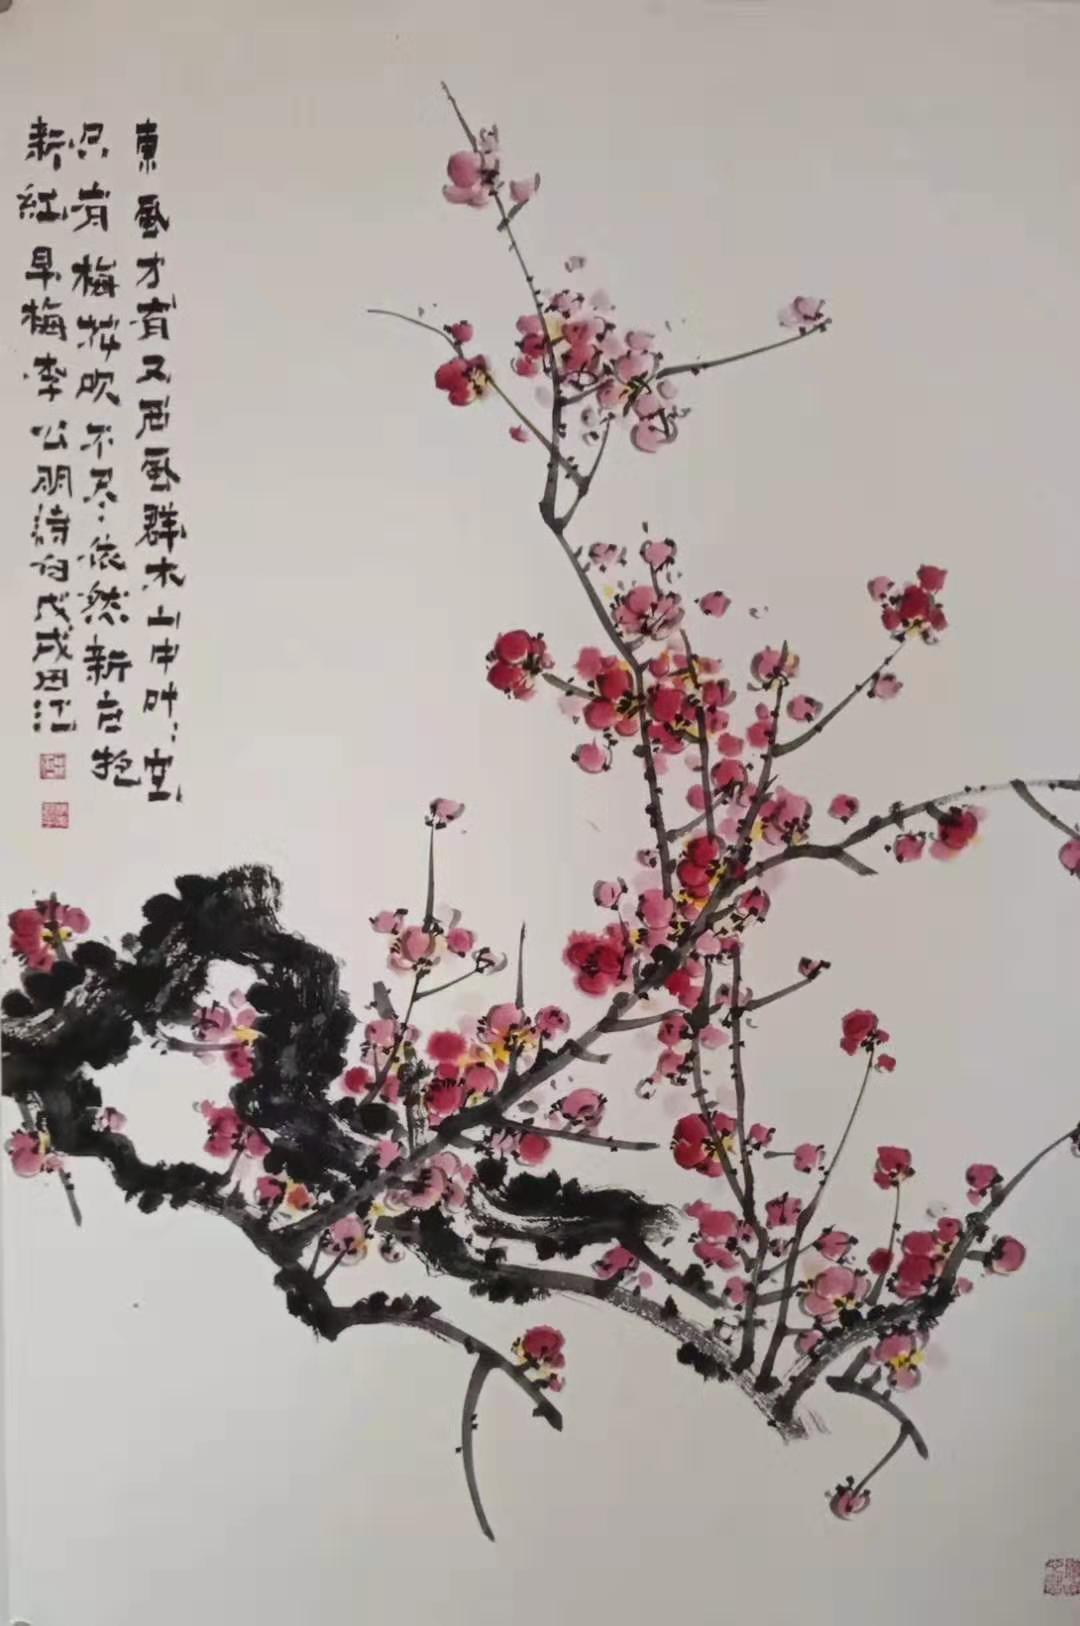 東風才有又西風群木山中叶〻空
只有梅花吹不尽依然新白抱
新紅早梅李公明詩句戊戌田江